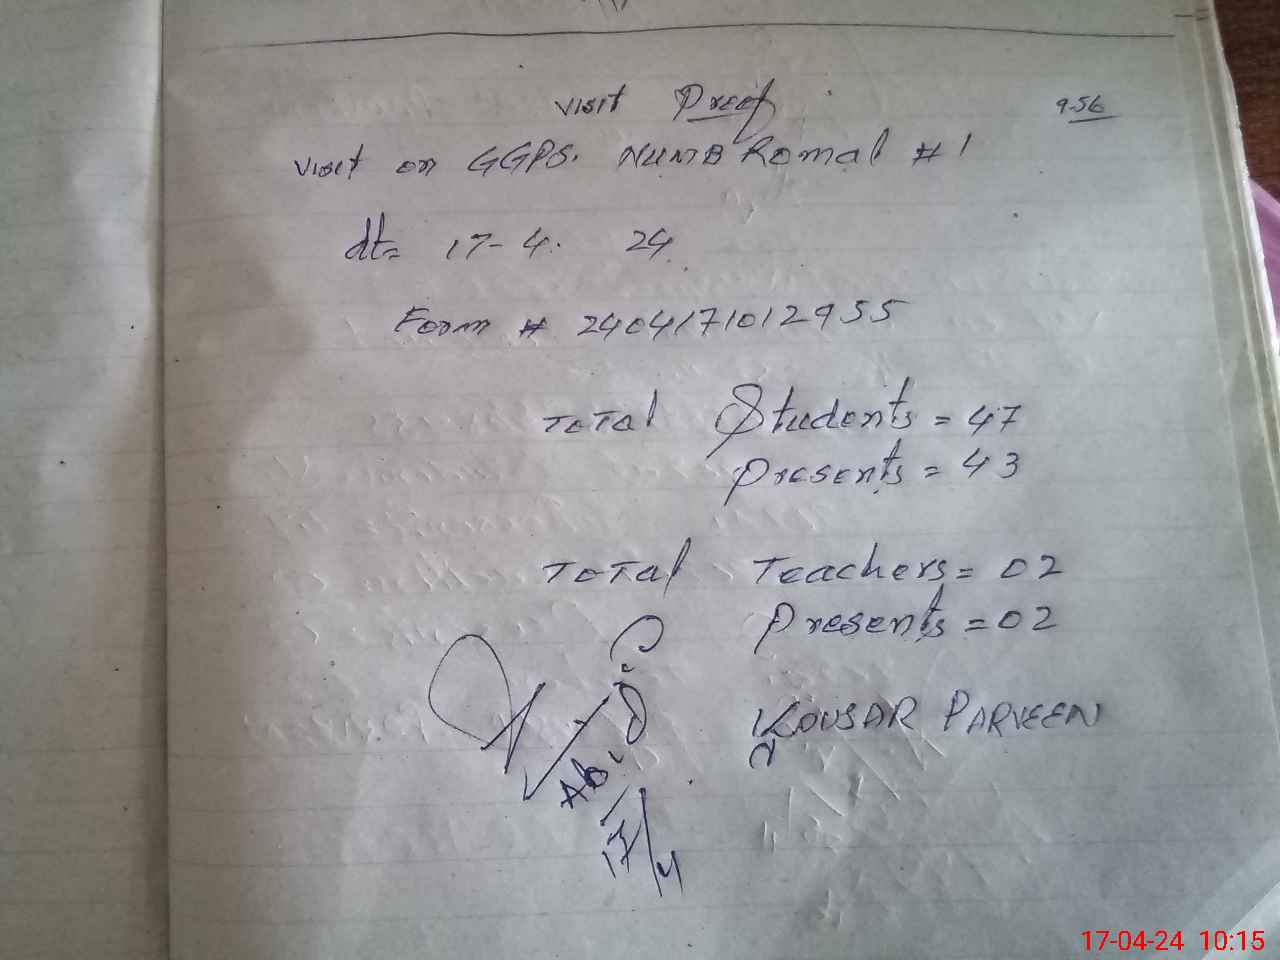 visit Proof 9-56
visit on GGPS. NUMB Romal # 1
dt= 17-4. 24
Form # 2404171012955
Total Students = 47
Presents = 43
Total Teachers = 02
Presents = 02
KOUSAR PARVEEN
17/4
17-04-24 10:15